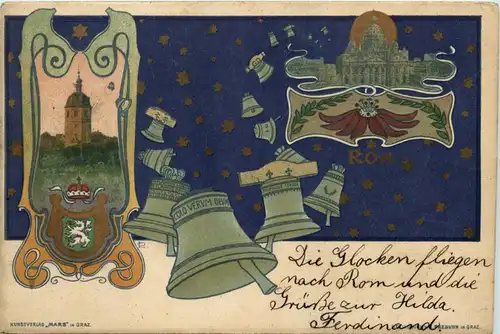 ROM
LAUDO VERUM DEUM
Die Glocken fliegen
nach Rom und die
Grüße zur Hilda.
Ferdinand
KUNSTVERLAG „MARS" IN GRAZ.
IN GRAZ.